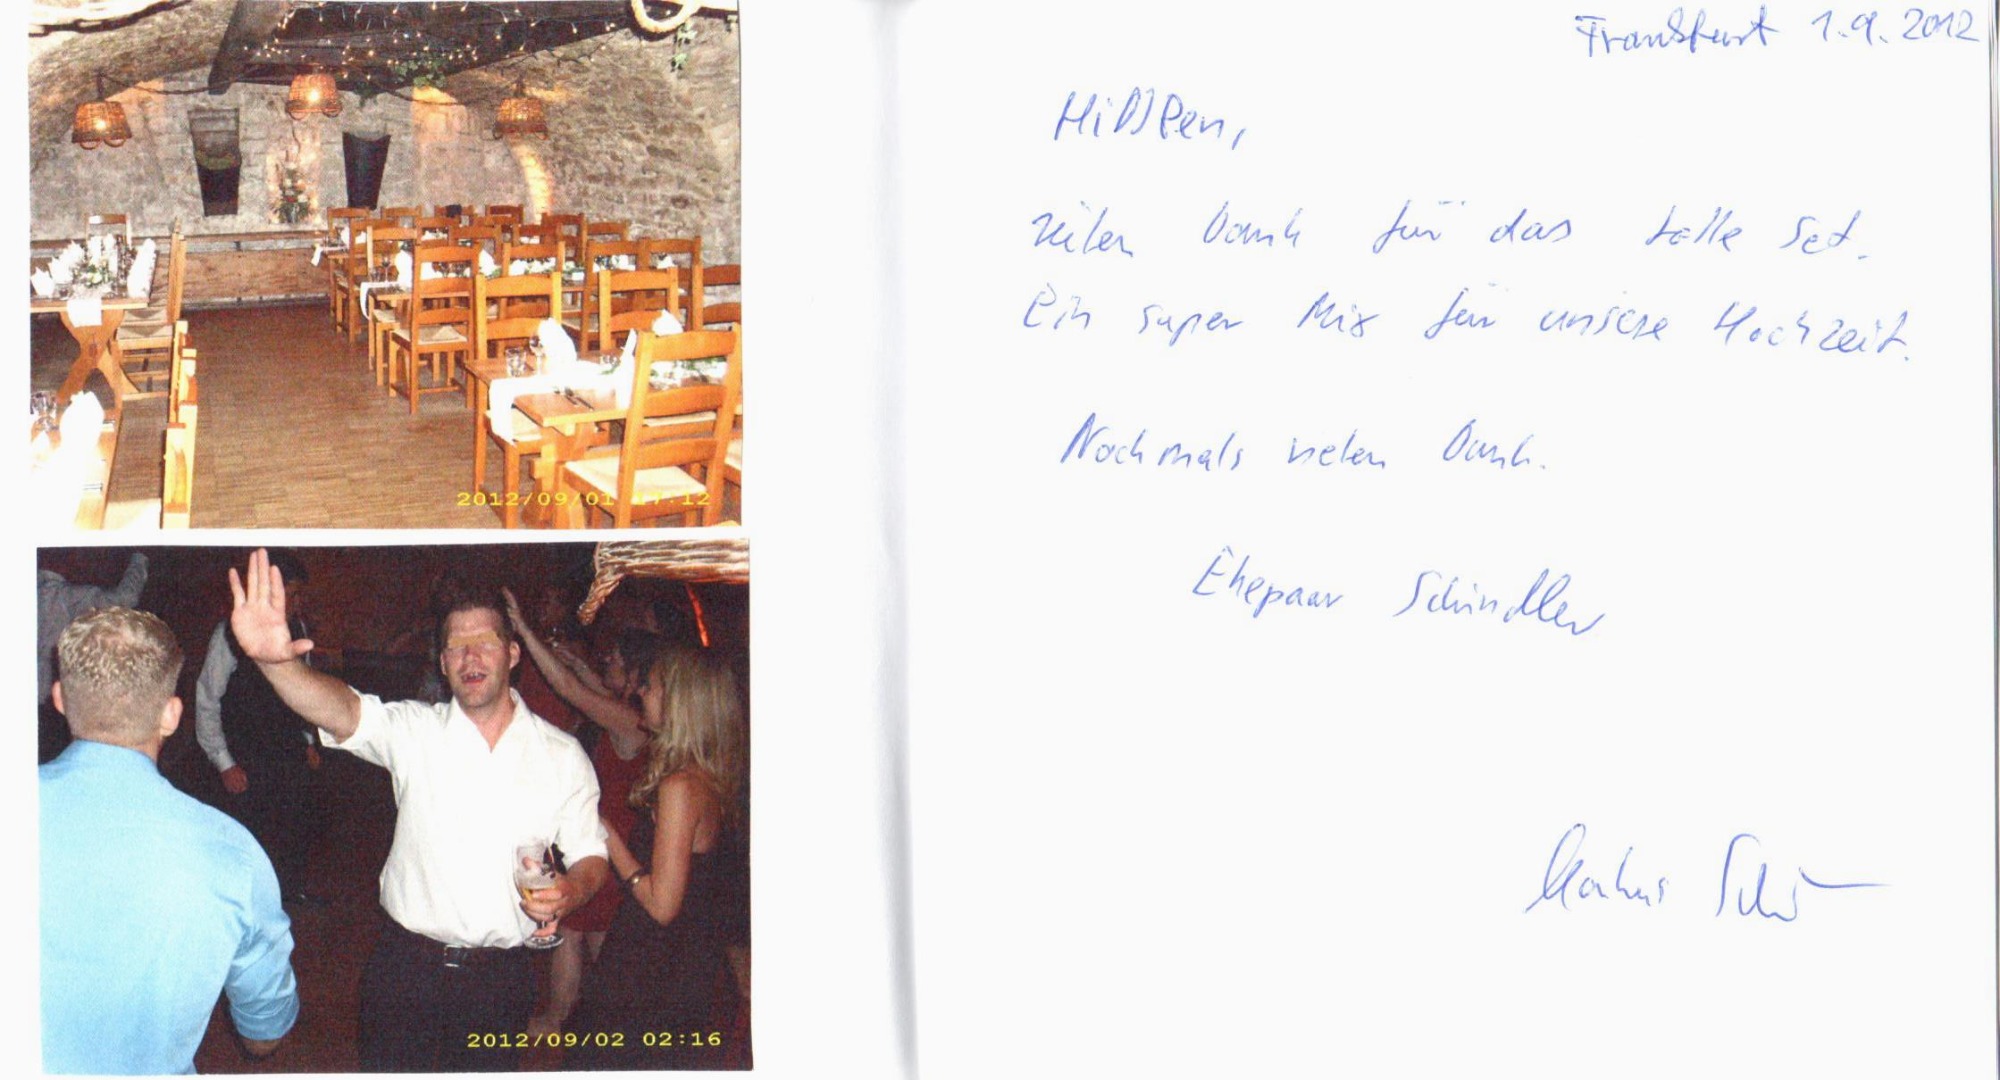 2012/09/01 17:12
2012/09/02 02:16
Frankfurt 1.9.2012
vielen Dank für das tolle Set.
Ein super Mix für unsere Hochzeit.
Nochmals vielen Dank.
Ehepaar Schindler
Markus